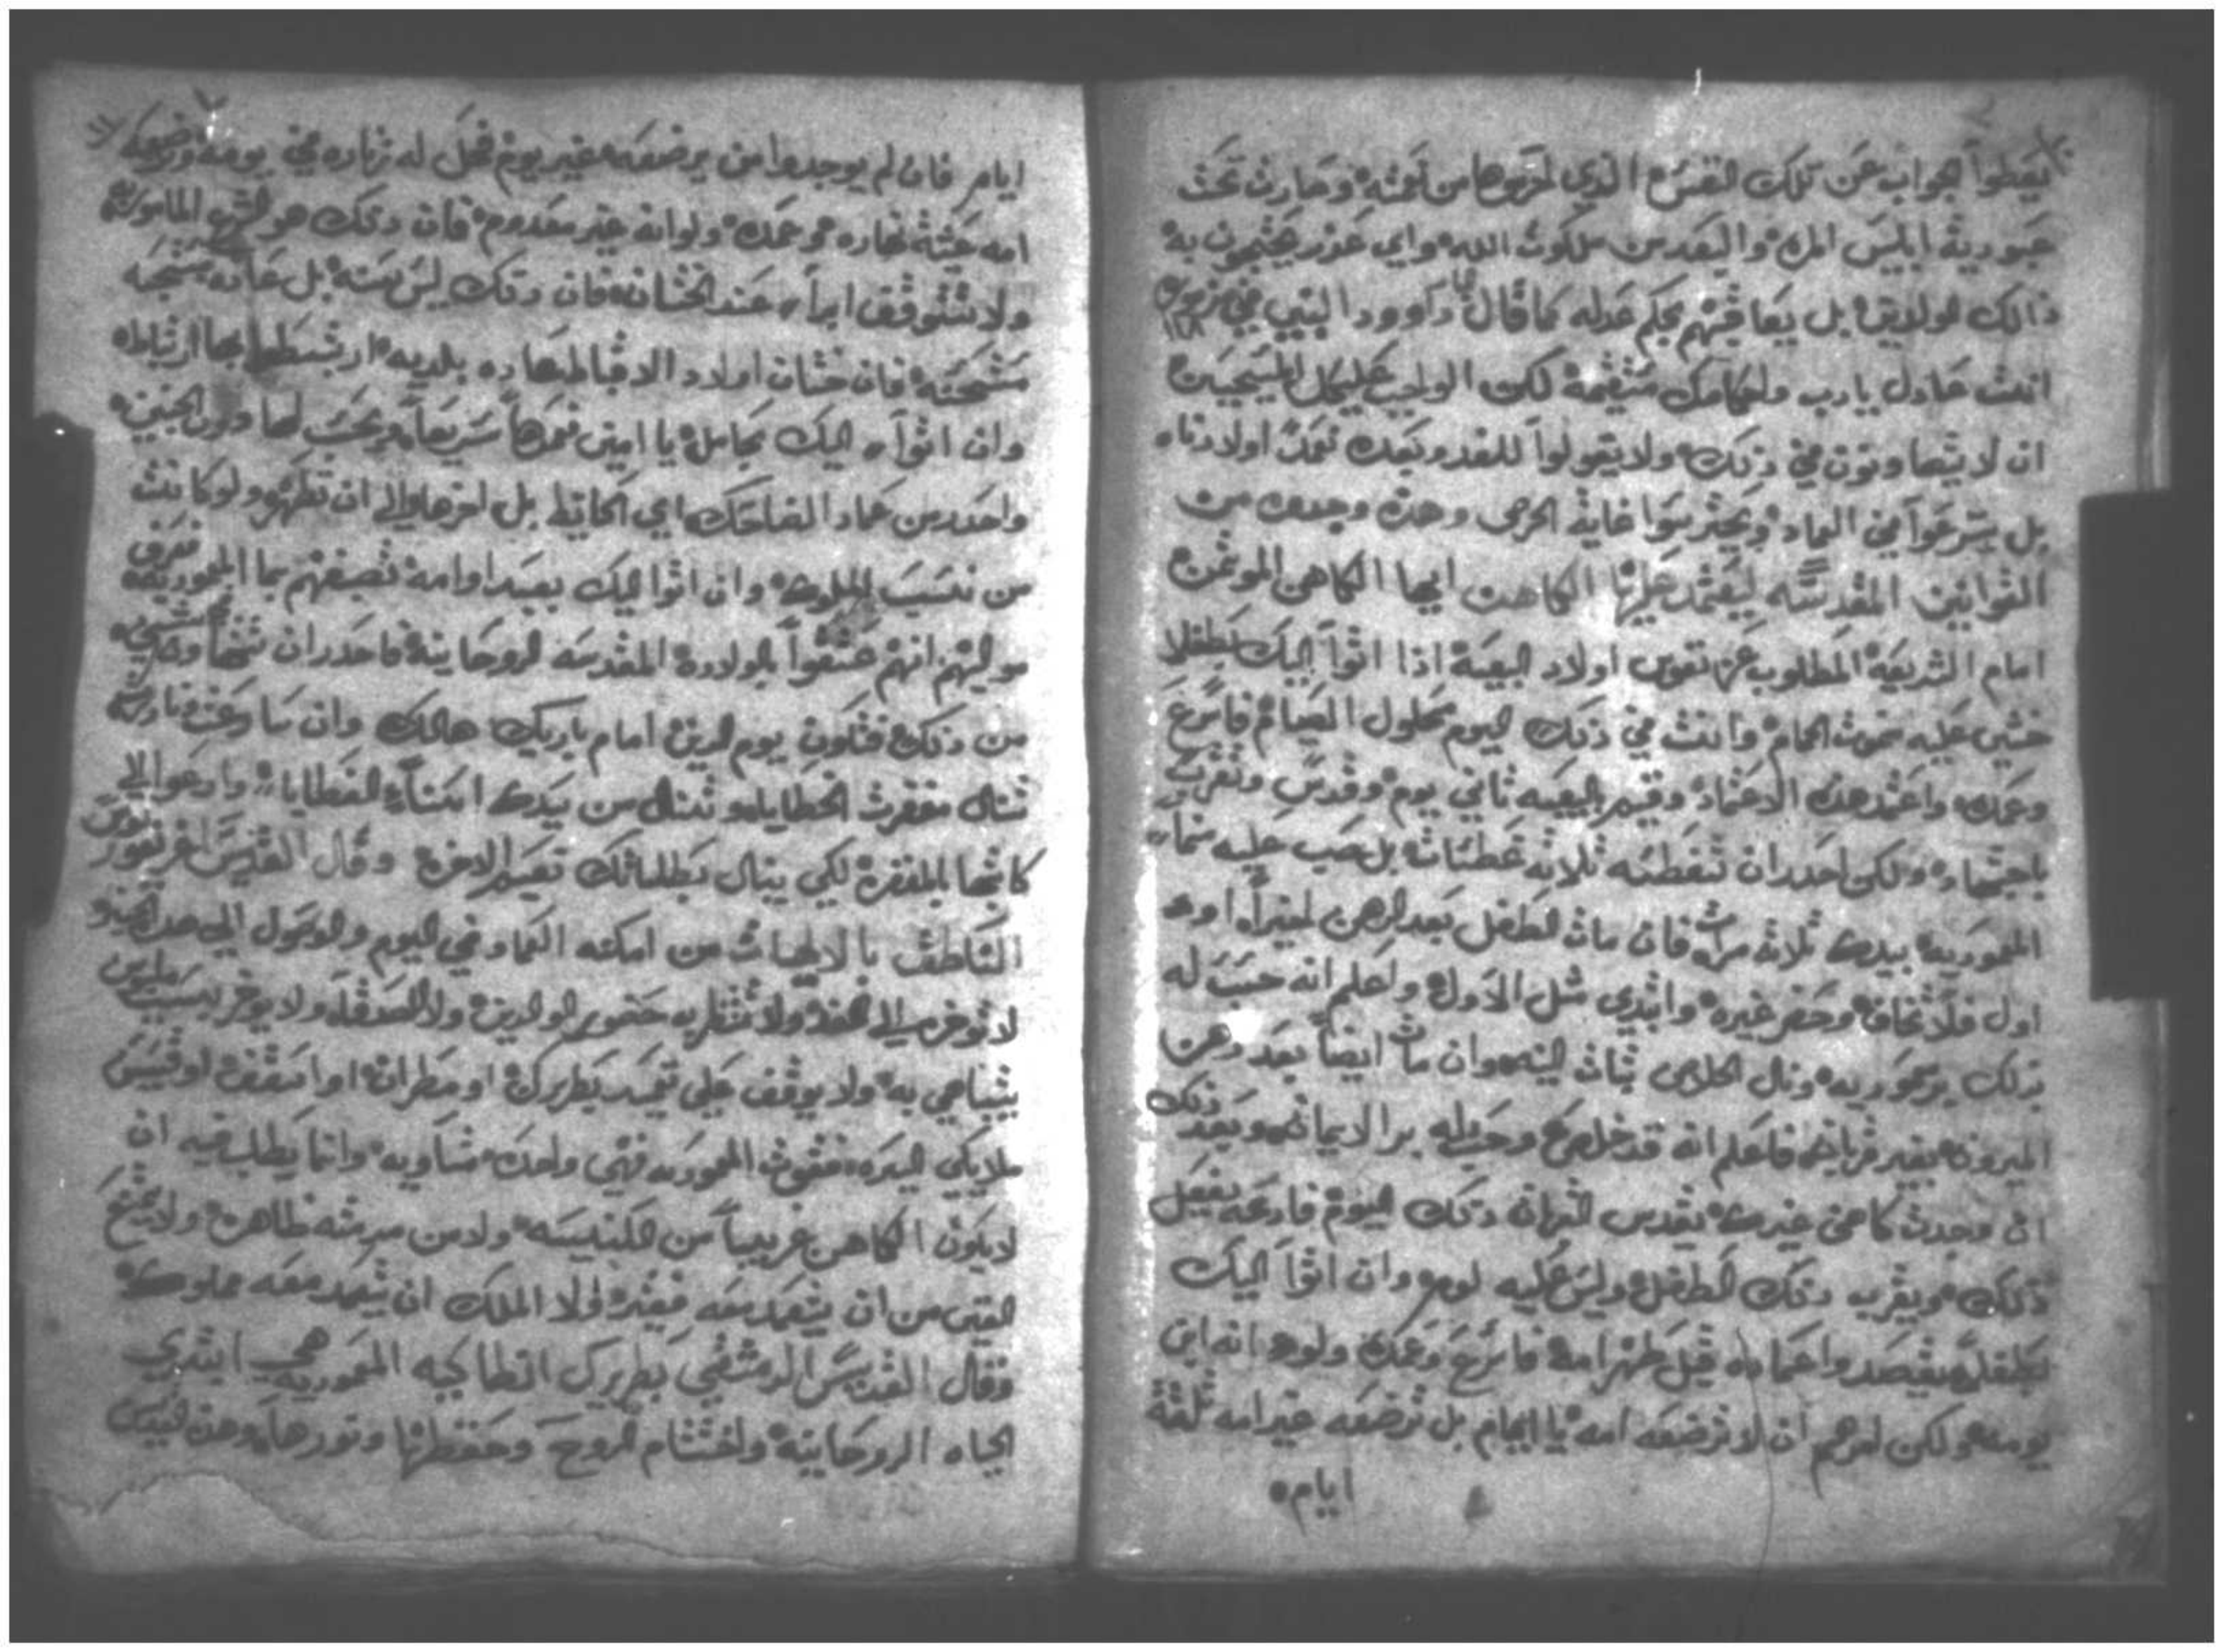 يعطوا الجواب عن تلك النفس الذي احرموها من نعمته وصارت تحت
عبودية ابليس المره والبعد من ملكوت الله واي عذر يحتجون به
ذالك الوالدين بل يعاقبهم بحكم عدله كما قال داوود النبي في مزمور ١١٨
انت عادل يا رب واحكامك مستقيمة لكن الواجب عليكم المسيحيين
ان لا يتهاونون في ذلك ولا يقولوا للغد وبعده نعمد اولادنا
بل يسرعوا في العماد ويحترسوا غاية الحرص وهذه وجدت من
القوانين المقدسه ليعتمد عليها الكاهن ايها الكاهن الموتمن
امام الشريعة المطلوب عن نفوس اولاد البيعة اذا اتوا اليك بطفل
خشي عليه موت الحمام وانت في ذلك اليوم محلول الصيام فاسرع
وعمده واعتمد هذه الاعتماد وقيم بالبيعه ثاني يوم وقدس وتقرب
باجتهاد ولكن احدر ان تغطسه ثلاثه غطسات بل صب عليه من ماء
المعمودية بيدك ثلاثه مرات فان مات الطفل بعد الدهن اخيراً او
اول فلا تخاف وحضر غيره وابتدي مثل الاول واعلم انه حسب له
بذلك بر معموديه ونال الخلاص بثبات النيه وان مات ايضا بعد دهن
الميرون بغير قربان فاعلم انه قد خلص وحسب له بر الايمان وبعد ذلك
ان وجدت كاهن غيرك يقدس القربان ذلك اليوم فادعه يفعل
ذلك ويقرب ذلك الطفل وليس عليه لوم وان اتوا اليك
بطفل بقصد واعماده قبل طهر امه فاسرع وعمده ولو انه ابن
يومه ولكن امرهم ان لا ترضعه امه يا ايهام بل ترضعه غير امه ثلثة
ايام
ايام فان لم يوجدوا من يرضعه غير يوم فحل له زناره في يومه وترضعه
امه عشية نهاره عمده ولو انه غير معدوم فان ذلك هو الشي المامور به
ولا تتوقف ابداً عند الختان فان ذلك ليس سنه بل عاده
فان ختان اولاد الاقباط عاده بلديه
وان اتوا اليك بحامل يا امين فعمدها سريعاً ويحسب لها دون الجنين
واحدر من عماد الضاحك اي الحايظ بل اخرها الي ان تطهر ولو كانت
من نسب الملوك وان اتوا اليك بعبد او امة تصبغهم بما المعموديه فعرف
مواليهم انهم عتقوا بالولادة المقدسه الروحانية فاحدر ان
من ذلك فتكون يوم الدين امام باريك هالك وان
تنال مغفرة الخطايا من يدك
كاتبها بالمغفرة لكي ينال بطلباتك نعيم الاخره وقال القديس
الناطق بالالاهيات من امكنه العماد في اليوم
لا توخره الي الغد ولا تنتظر به حضور الوالدين ولا الصدقا ولا يوخر بسبب ملبوس
يتباهي به ولا يوقف علي تعميد بطريرك او مطران او اسقف او قسيس
ملايكي السيره فقوة المعموديه فهي واحده متساويه وانما يطلب فيه ان
لا يكون الكاهن غريباً من الكنيسه ولد من سيرته ظاهره ولا يمتنع
الغني من ان يتعمد معه فقير ولا الملك ان يتعمد معه مملوك
وقال القديس الدمشقي بطريرك انطاكيه المعمودية هي ابتدي
الحياه الروحانية واختتام الروح وحفظها ونورها وهذه ليس